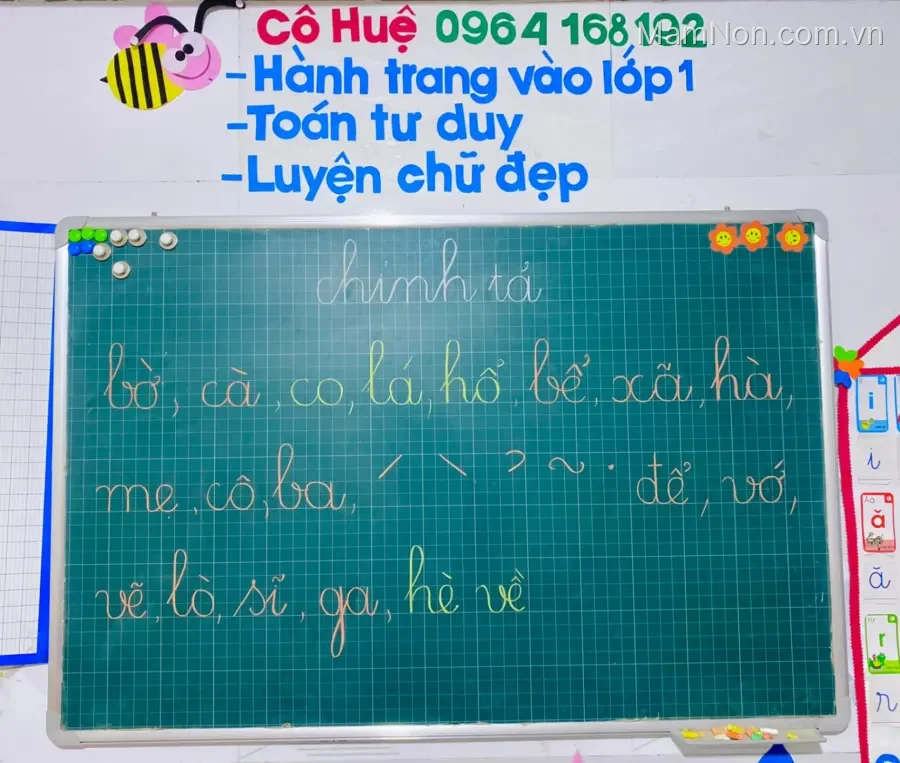 Cô Huệ 0964 168 192
MamNon.com.vn
-Hành trang vào lớp 1
-Toán tư duy
-Luyện chữ đẹp
chính tả
bờ, cà, co, lá, hổ, bể, xã, hà,
me, cô, ba, ˊ ˋ ̉ ~ . để, vớ,
vẽ, lò, sĩ, ga, hè về
i
i
ă
ă
r
r